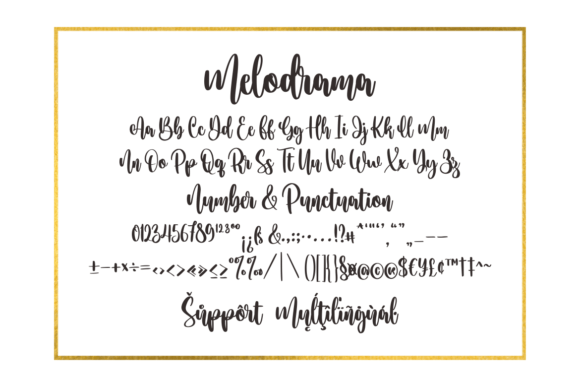 Melodrama
Aa Bb Cc Dd Ee Ff Gg Hh Ii Jj Kk Ll Mm
Nn Oo Pp Qq Rr Ss Tt Uu Vv Ww Xx Yy Zz
Number & Punctuation
0123456789¹²³⁰⁰ ¡¿ß &.,:;·…!?# "'“‘’ “” ‚ „ _–—
±−+×÷=‹›<>«»≤≥°%‰/|\()[]{}§¤@©®$€¥£¢™†‡^~
Šůppôrt Mųĺţįlïñġùáł